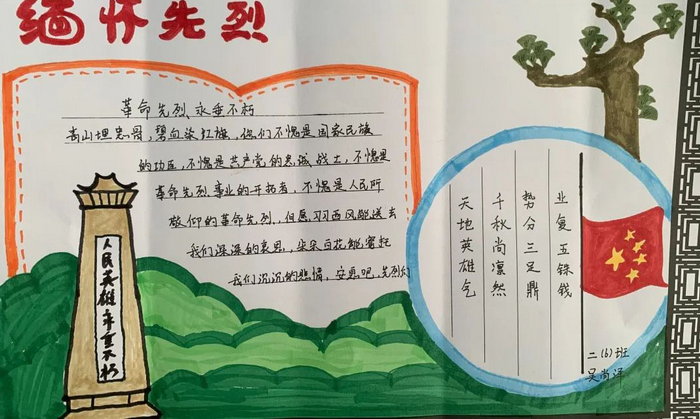 缅怀先烈
革命先烈、永垂不朽
青山埋忠骨，碧血染红旗，你们不愧是国家民族
的功臣，不愧是共产党的忠诚战士，不愧是
革命先烈事业的开拓者，不愧是人民所
敬仰的革命先烈，但愿习习西风能送去
我们深深的哀思，朵朵白花能寄托
我们沉沉的悲情，安息吧，先烈们
人民英雄永垂不朽
天地英雄气
千秋尚凛然
势分三足鼎
业复五铢钱
二(6)班
吴尚泽